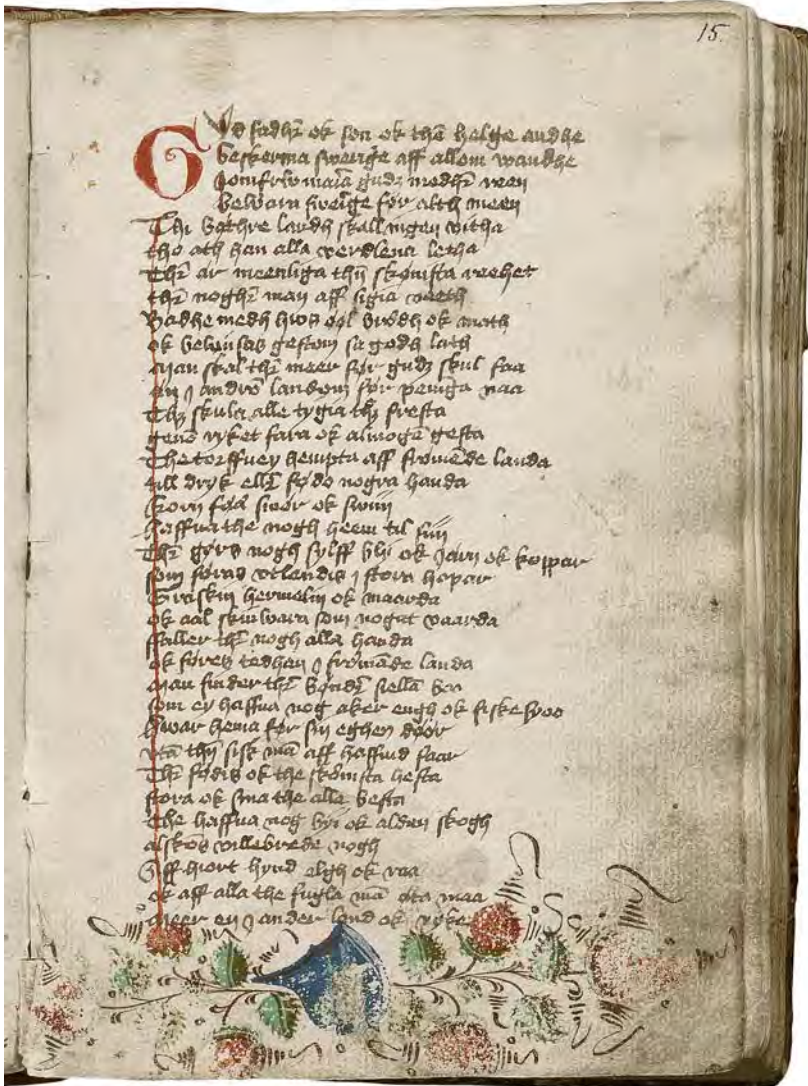 15.
Gud fadh̄r ok son ok thē helge andhe
beskerma swerige aff allom wandhe
Jomfrw maria gudz modh̄r reen
bewara swerige for alth meen
Thi bæthre landh skall ingen vitha
tho ath han alla verdlena letha
Th̄r ær meenliga thz skømsta
th̄r nogh̄r man aff sigia
Badhe medh hws øøl brødh ok math
ok bewisas gestom sa godh lath
man skal th̄r meer før gudz skul faa
æn j andrō landom før peninga naa
Thz skula alle tygia thz fresta
genō ryket fara ok almogē gesta
The torffuey hempta aff frømēde landa
till dryk ell̄r fødo nogra handa
korn fææ smør ok swin
haffua the nogh heem til siin
Th̄r gørs nogh sylff bly ok jærn ok koppar
som føras vtlendis j stora hopar
Graskin hermelin ok maarda
ok aal skinwara som nogat vaarda
ffaller th̄r nogh alla handa
ok føres tedhan j frømāde landa
man finder th̄r bønd̄r siellā boo
som ey haffua nog aker engh ok fiske
hwar hema før sin eghen døør
vtā thz fisk mā aff haffuid faar
Th̄r fødis ok the skømsta hesta
stora ok sma the alla besta
The haffua nog byi ok alden skogh
alskōs villebrede nogh
Aff hiort hynd elgh ok raa
ok aff alla the fugla mā æta maa
meer en j ander land ok ryke